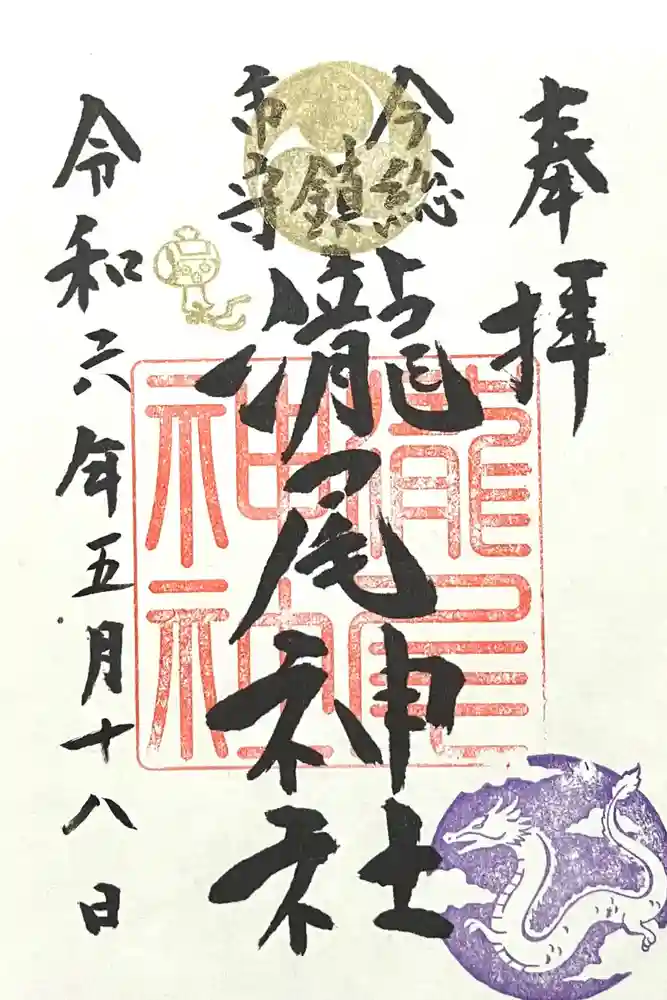 奉拝
今市
総鎮守
瀧尾神社
令和六年五月十八日
瀧尾
神社